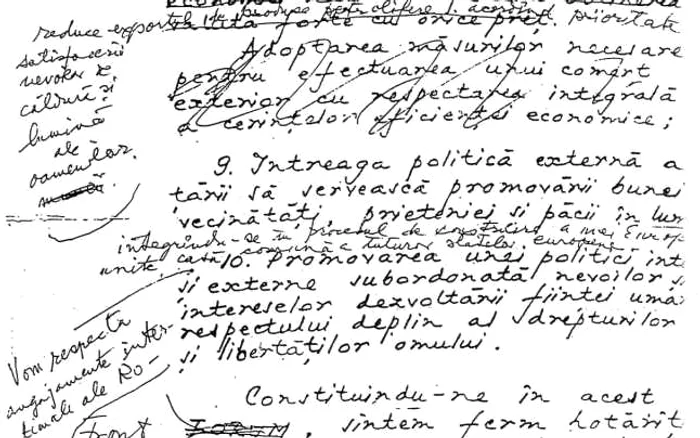 reduce exportul de produse petrolifere, acordînd prioritate
valută forte cu orice preț.
satisfacerii
nevoilor de
căldură și
lumină
ale
oamenilor.
Adoptarea măsurilor necesare
pentru efectuarea unui comerț
exterior cu respectarea integrală
a cerințelor eficienței economice;
9. Intreaga politică externă a
țării să servească promovării bunei
vecinătăți, prieteniei și păcii în lum
integrîndu-se în procesul de construire a unei Europe
unite, casă comună a tuturor statelor europene.
10. Promovarea unei politici int
și externe subordonată nevoilor și
intereselor dezvoltării ființei uma
respectului deplin al drepturilor
și libertăților omului.
Vom respecta
angajamente inter-
ționale ale Ro-
Constituindu-ne în acest
Front
FORUM, sîntem ferm hotărît